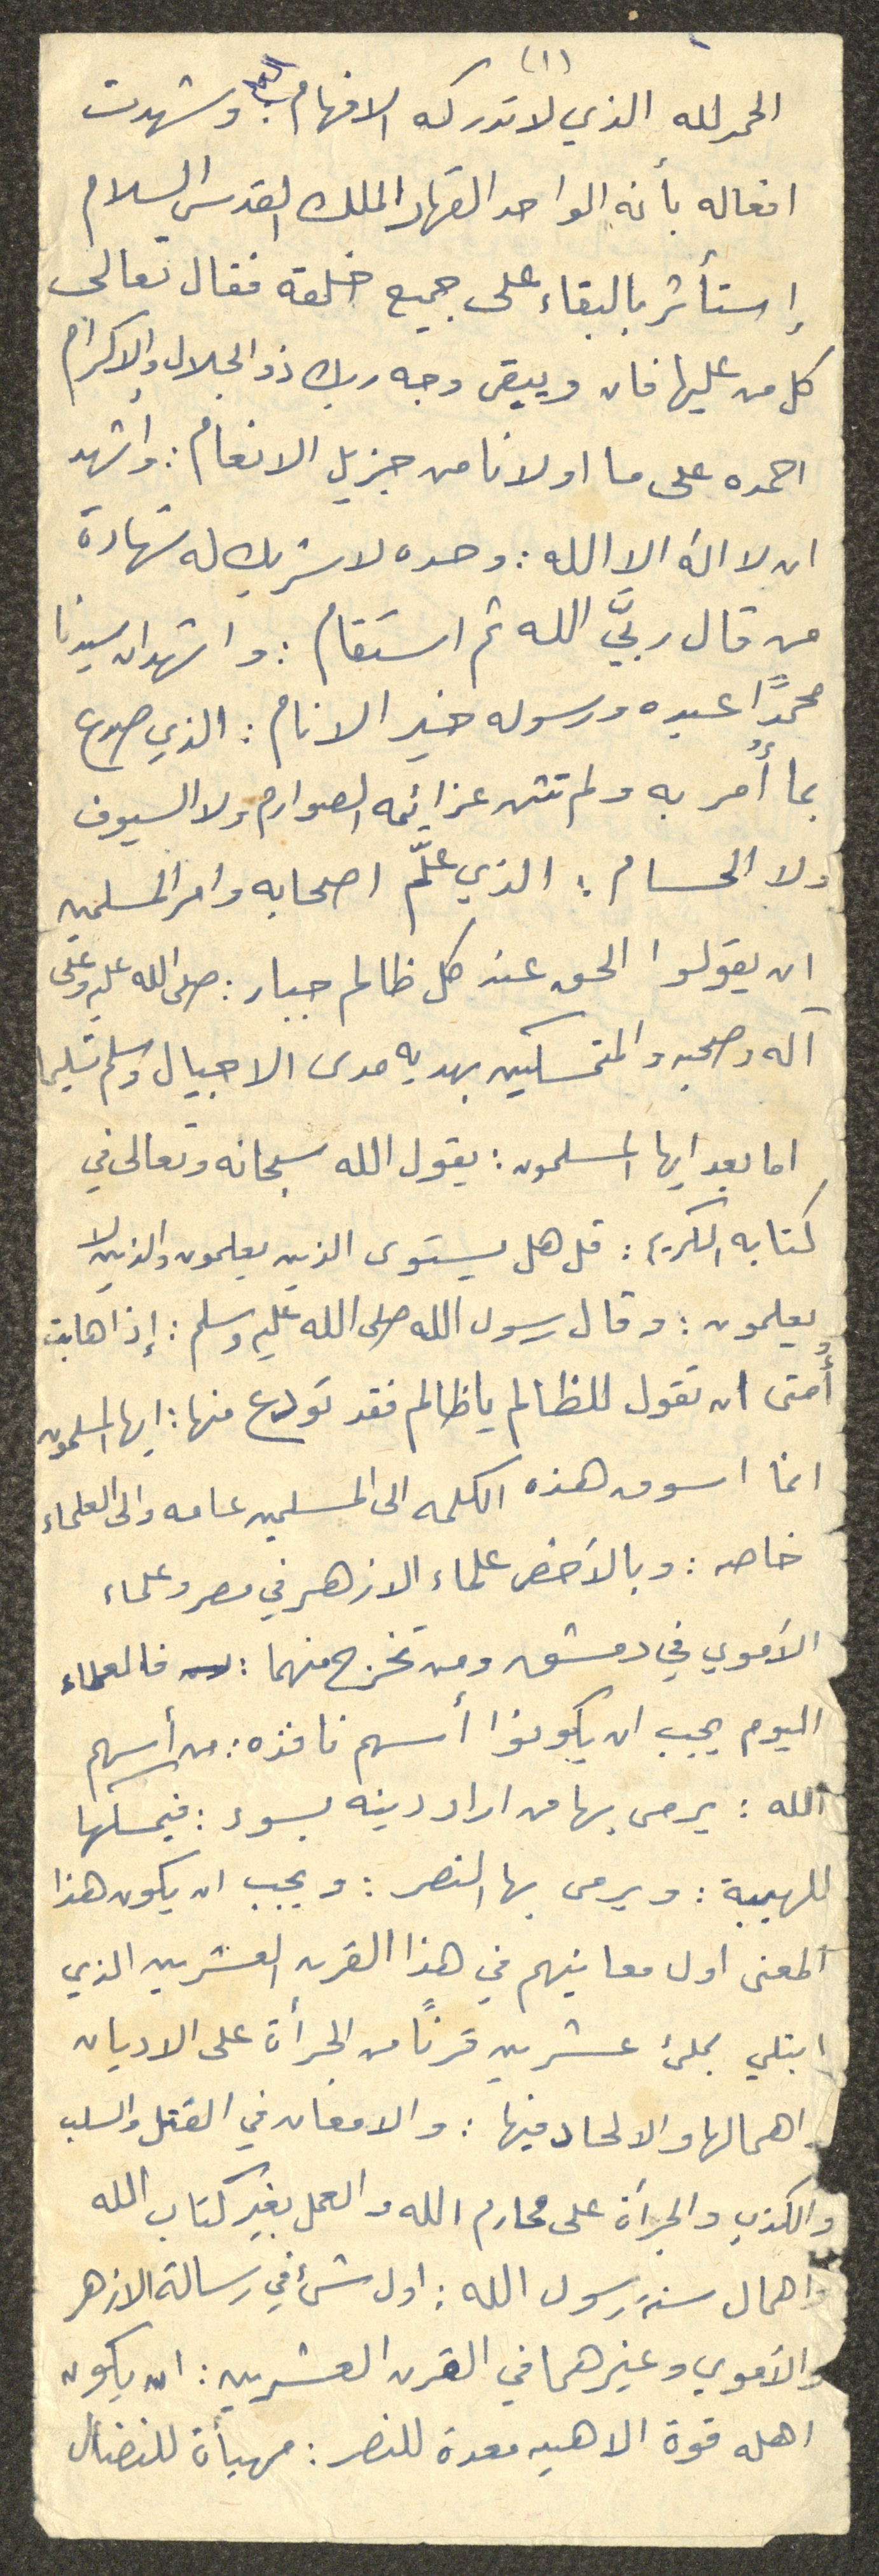 (١)
الحمد لله الذي لا تدركه الافهام : وشهدت
افعاله بأنه الواحد القهار الملك القدس السلام
إستأثر بالبقاء على جميع خلقه فقال تعالى
كل من عليها فان ويبقى وجه ربك ذو الجلال والإكرام
احمده على ما اولانا من جزيل الانعام : واشهد
ان لا اله الا الله : وحده لا شريك له شهادة
من قال ربيَّ الله ثم استقام : واشهد ان سيدنا
محمدًا عبده ورسوله خير الانام : الذي صدع
بما أُمر به ولم تثن عزائمه الصوارم ولا السيوف
ولا الحسام : الذي علّم اصحابه وامر المسلمين
ان يقولوا الحق عند كل ظالم جبار : صلى الله عليه وعلى
آله وصحبه والمتمسكين بهديه مدى الاجيال وسلم تسليما
اما بعد ايها المسلمون : يقول الله سبحانه وتعالى في
كتابه الكريم : قل هل يستوى الذين يعلمون والذين لا
يعلمون : وقال رسول الله صلى الله عليه وسلم : إذا هابت
أُمتى ان تقول للظالم يا ظالم فقد تودع منها : ايها المسلمون
انما اسوق هذه الكلمه الى المسلمين عامه والى العلماء
خاصه : وبالأخص علماء الازهر في مصر وعلماء
الأموي في دمشق ومن تخرج منهما : فالعلماء
اليوم يجب ان يكونوا أسهم نافذه : من أسهم
الله : يرمى بها من اراد دينه بسوء : فيمسكها
للهيبة : ويرمى بها النصر : ويجب ان يكون هذا
المعنى اول معانيهم في هذا القرن العشرين الذي
ابتلي بملئ عشرين قرنًا من الجرأة على الاديان
واهمالها والالحاد فيها : والامعان في القتل والسلب
والكذب والجرأة على محارم الله والعمل بغير كتاب الله
واهمال سنة رسول الله : اول شئ في رسالة الازهر
والأموي وغيرهما في القرن العشرين : ان يكون
اهله قوة الاهيه معدة للنصر : مهيأة للنضال